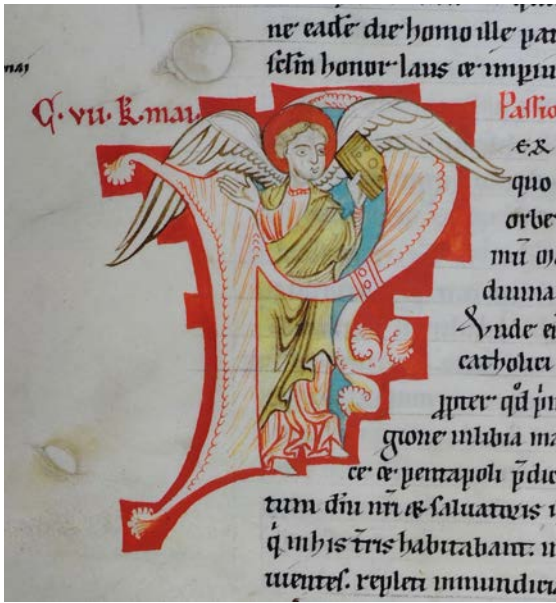 ne eadē die homo ille
honor laus
.vii. k. mai. Passio
ER
quo
orbe
mū
diuina
Vnde
catholici
ꝓpter qđ
gione inlibia ma
ce œ pentapoli p̄dic
tum dn̄i nr̄i & saluatoris
inhis tr̄is habitabant:
repleti inmundici